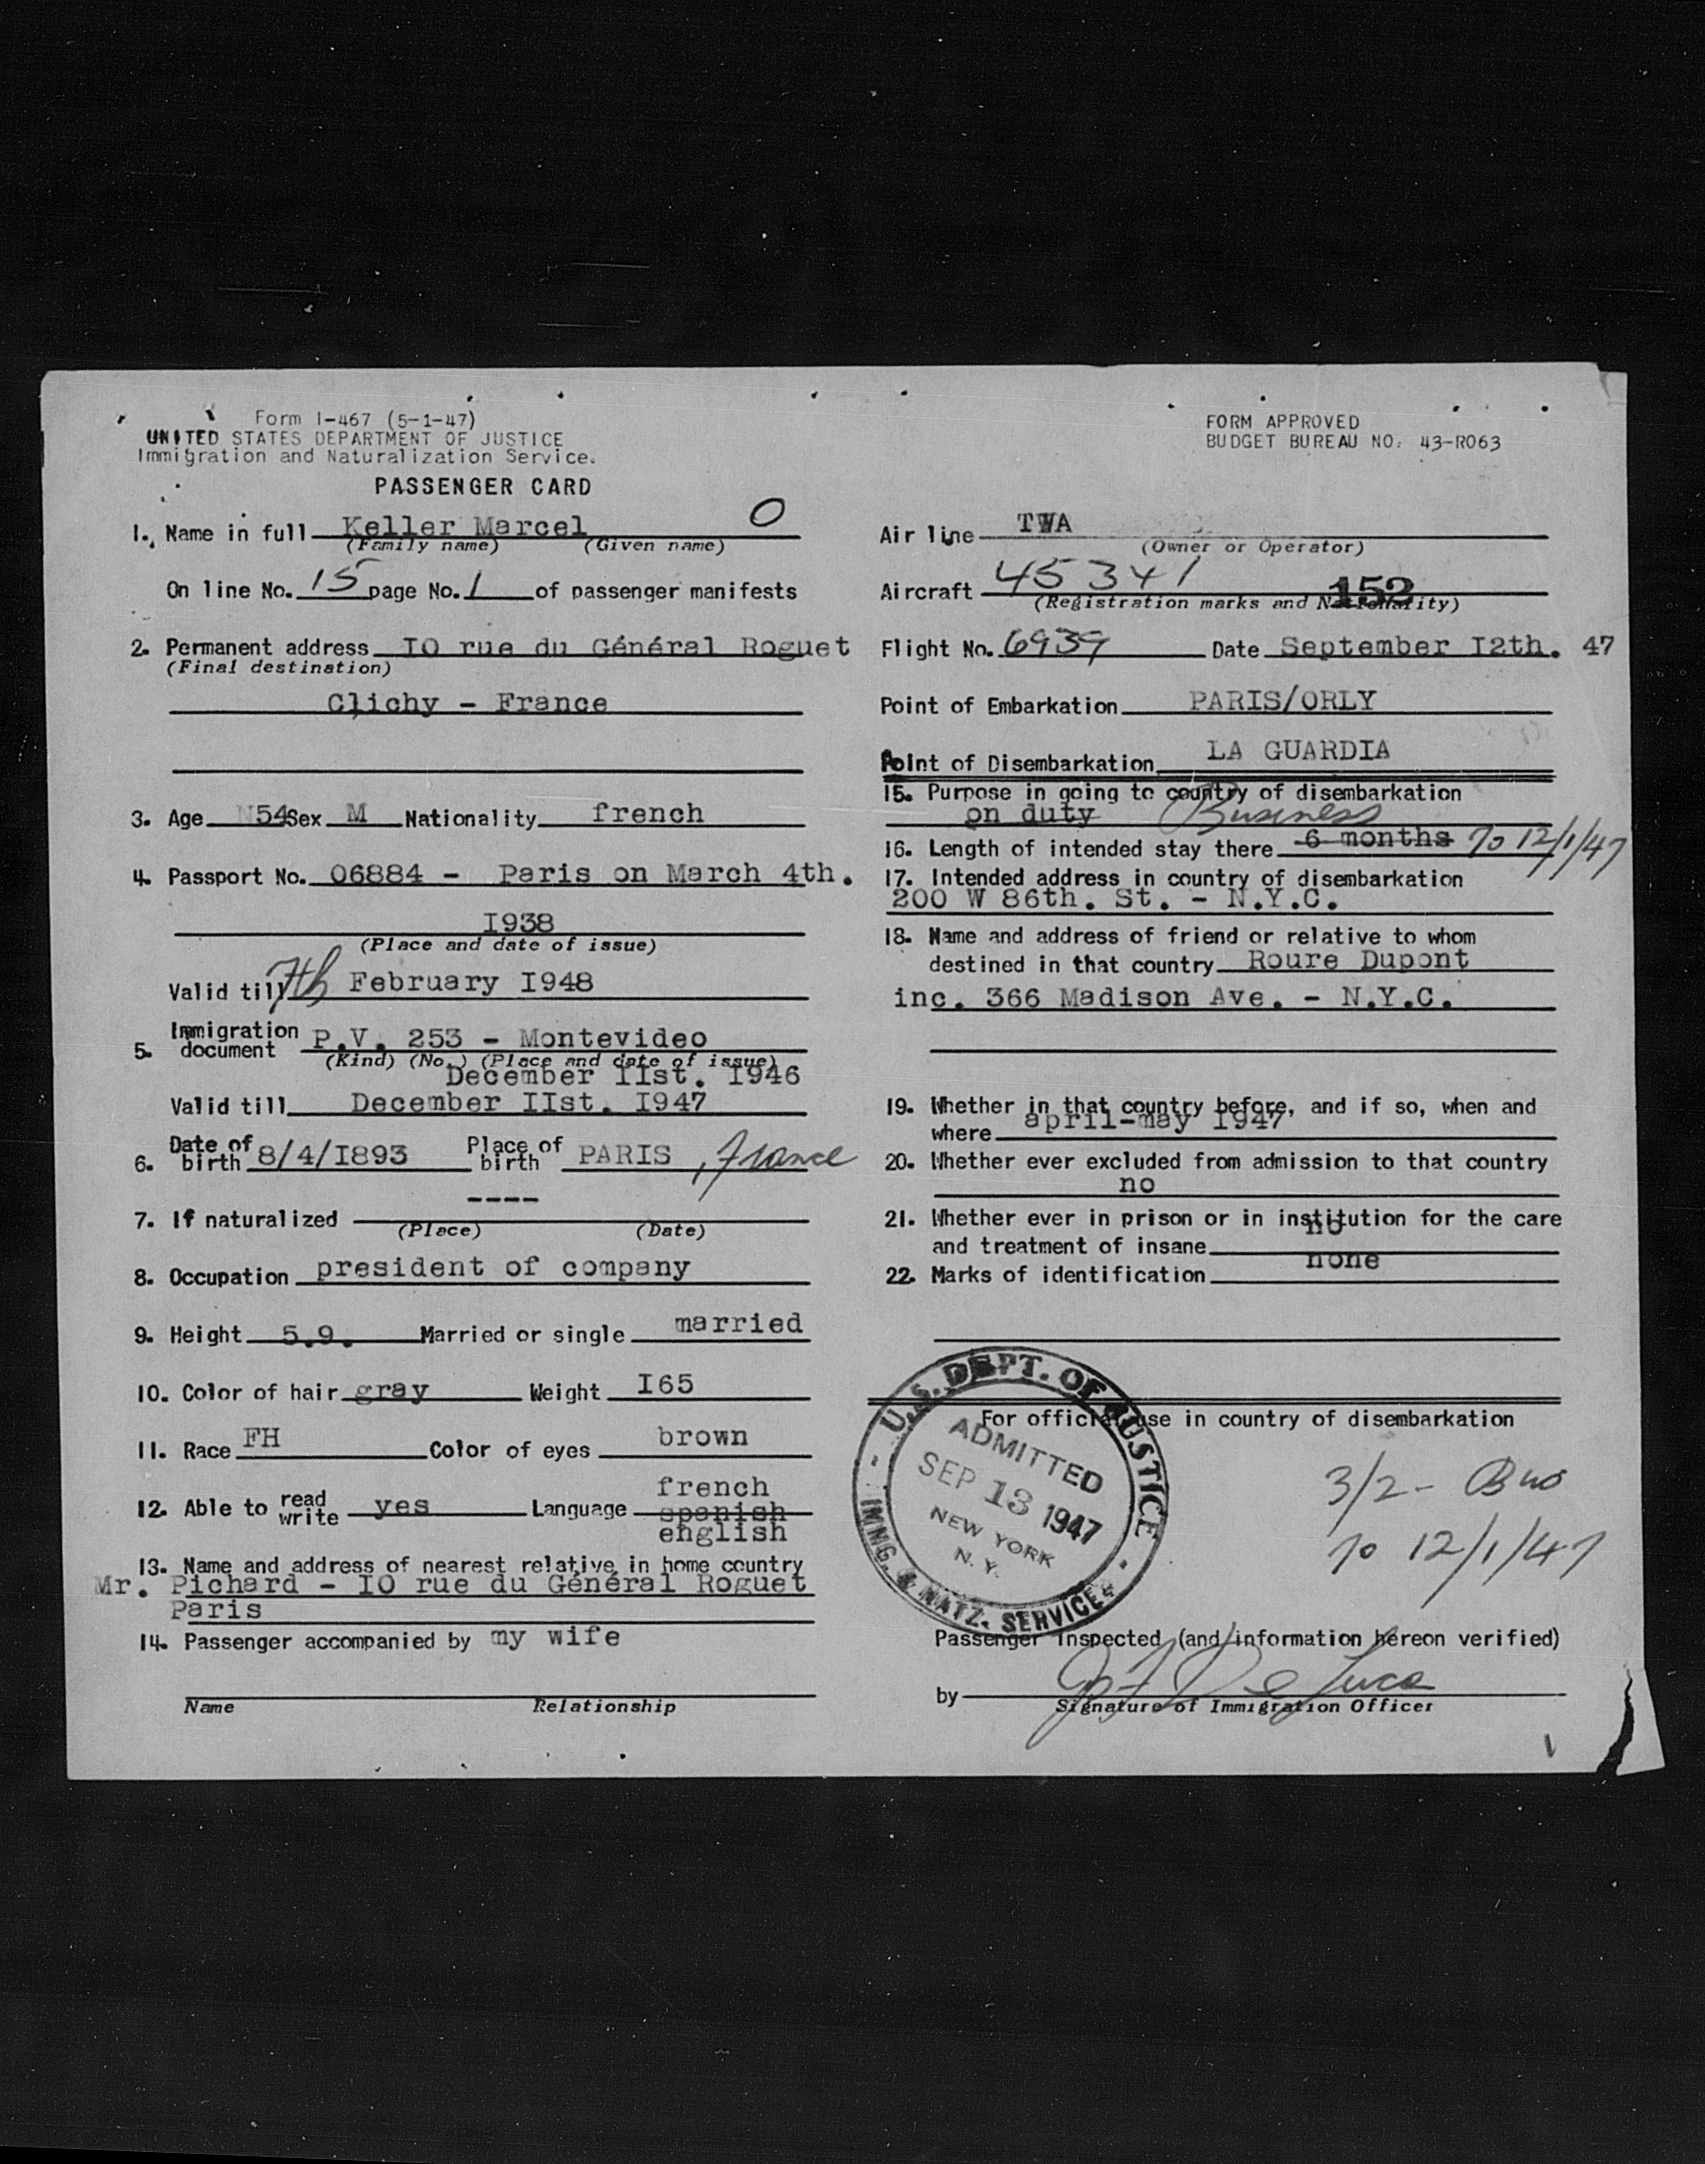 Form I-467 (5-1-47)
UNITED STATES DEPARTMENT OF JUSTICE
Immigration and Naturalization Service.
PASSENGER CARD
1. Name in full Keller Marcel O
(Family name) (Given name)
On line No. 15 page No. 1 of passenger manifests
2. Permanent address IO rue du Général Roguet
(Final destination)
Clichy - France
3. Age 54 Sex M Nationality french
4. Passport No. 06884 - Paris on March 4th.
I938
(Place and date of issue)
Valid till 7th February I948
5. Immigration document P.V. 253 - Montevideo
(Kind) (No.) (Place and date of issue)
December IIst. I946
Valid till December IIst. I947
6. Date of birth 8/4/I893 Place of birth PARIS, France
----
7. If naturalized
(Place) (Date)
8. Occupation president of company
9. Height 5.9. Married or single married
10. Color of hair gray Weight I65
11. Race FH Color of eyes brown
12. Able to read write yes Language french
spanish
english
13. Name and address of nearest relative in home country
Mr. Pichard - IO rue du Général Roguet
Paris
14. Passenger accompanied by my wife
Name Relationship
FORM APPROVED
BUDGET BUREAU NO. 43-R063
Air line TWA
(Owner or Operator)
Aircraft 45341 152
(Registration marks and Nationality)
Flight No. 6939 Date September I2th. 47
Point of Embarkation PARIS/ORLY
Point of Disembarkation LA GUARDIA
15. Purpose in going to country of disembarkation
on duty Business
16. Length of intended stay there 6 months To 12/1/47
17. Intended address in country of disembarkation
200 W 86th. St. - N.Y.C.
18. Name and address of friend or relative to whom
destined in that country Roure Dupont
inc. 366 Madison Ave. - N.Y.C.
19. Whether in that country before, and if so, when and
where april-may I947
20. Whether ever excluded from admission to that country
no
21. Whether ever in prison or in institution for the care
and treatment of insane no
22. Marks of identification none
For official use in country of disembarkation
U.S. DEPT. OF JUSTICE
ADMITTED
SEP 13 1947
NEW YORK
N.Y.
IMNG. & NATZ. SERVICE
3/2 - Bus
To 12/1/47
Passenger Inspected (and information hereon verified)
by J F De Luca
Signature of Immigration Officer